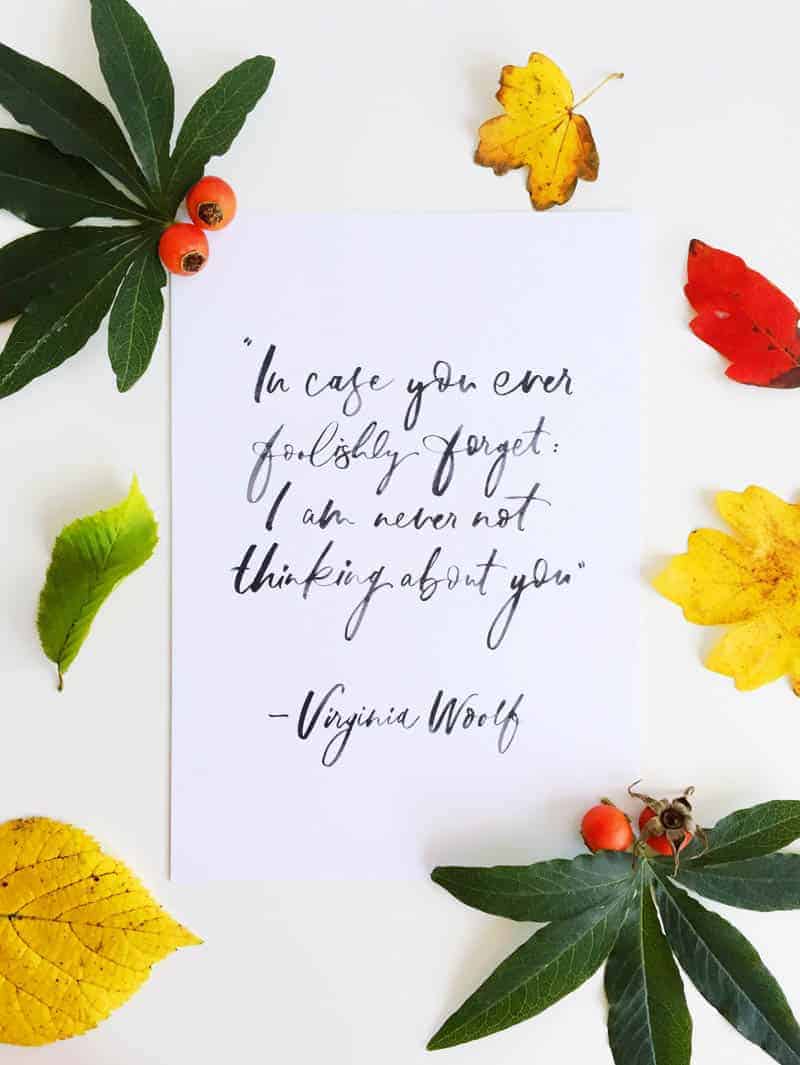 "In case you ever
foolishly forget:
I am never not
thinking about you"
– Virginia Woolf